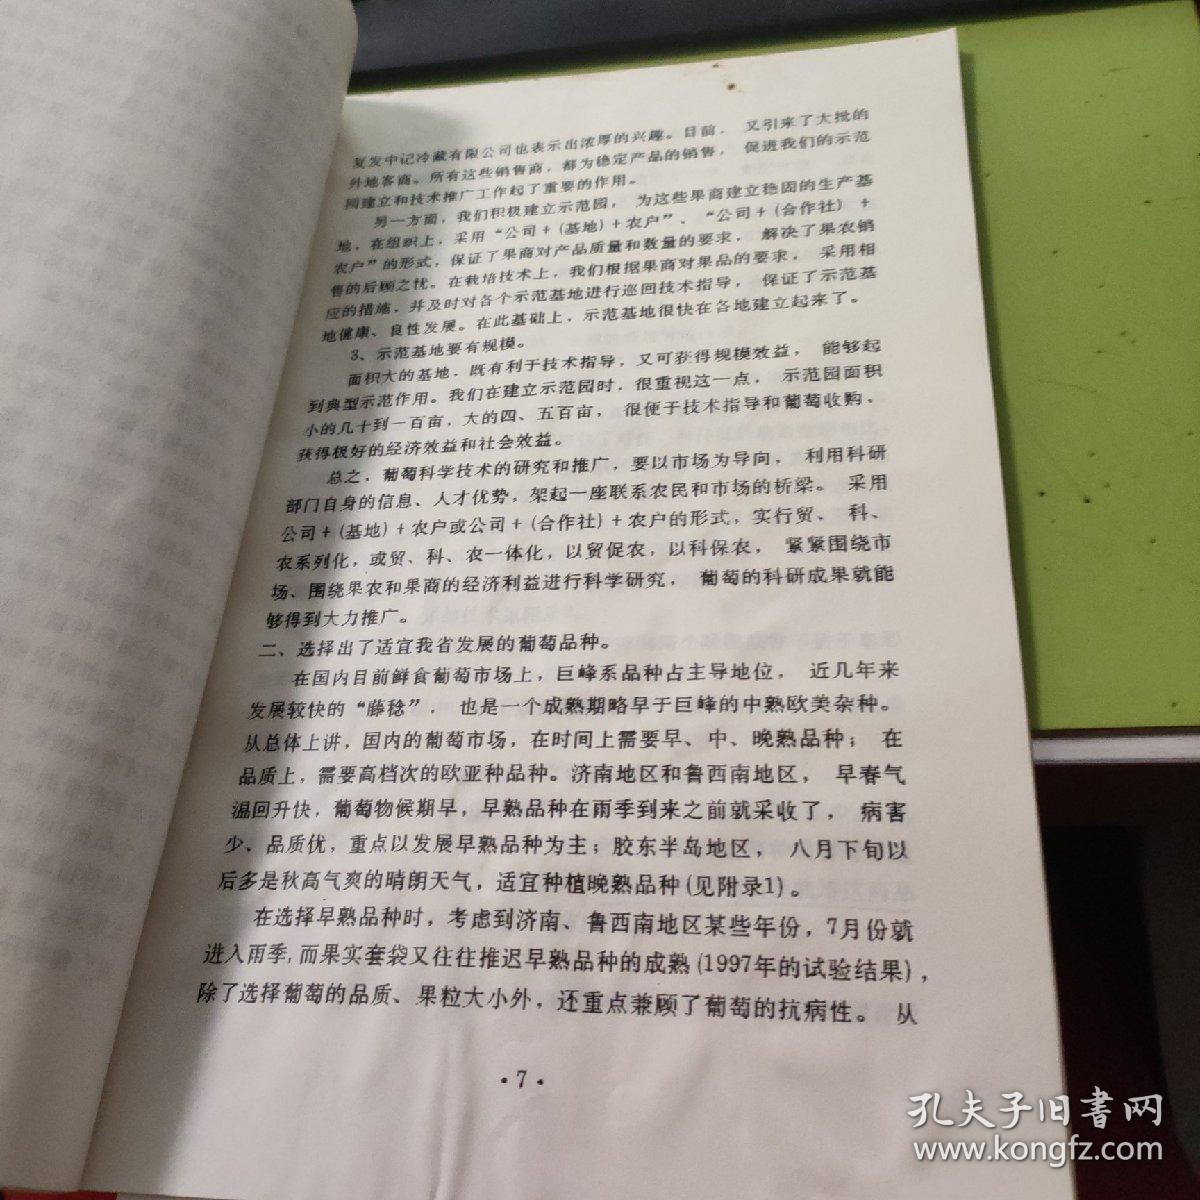 复发中记冷藏有限公司也表示出浓厚的兴趣。目前， 又引来了大批的
外地客商。所有这些销售商，都为稳定产品的销售， 促进我们的示范
园建立和技术推广工作起了重要的作用。
另一方面，我们积极建立示范园， 为这些果商建立稳固的生产基
地，在组织上，采用“公司+(基地)+农户”、“公司+(合作社)+
农户”的形式，保证了果商对产品质量和数量的要求， 解决了果农销
售的后顾之忧。在栽培技术上，我们根据果商对果品的要求， 采用相
应的措施，并及时对各个示范基地进行巡回技术指导， 保证了示范基
地健康、良性发展。在此基础上，示范基地很快在各地建立起来了。
3、示范基地要有规模。
面积大的基地，既有利于技术指导，又可获得规模效益， 能够起
到典型示范作用。我们在建立示范园时，很重视这一点， 示范园面积
小的几十到一百亩，大的四、五百亩， 很便于技术指导和葡萄收购，
获得极好的经济效益和社会效益。
总之，葡萄科学技术的研究和推广，要以市场为导向， 利用科研
部门自身的信息、人才优势，架起一座联系农民和市场的桥梁。 采用
公司+(基地)+农户或公司+(合作社)+农户的形式，实行贸、 科、
农系列化，或贸、科、农一体化，以贸促农，以科保农， 紧紧围绕市
场、围绕果农和果商的经济利益进行科学研究， 葡萄的科研成果就能
够得到大力推广。
二、选择出了适宜我省发展的葡萄品种。
在国内目前鲜食葡萄市场上，巨峰系品种占主导地位， 近几年来
发展较快的“藤稔”， 也是一个成熟期略早于巨峰的中熟欧美杂种。
从总体上讲，国内的葡萄市场，在时间上需要早、中、晚熟品种； 在
品质上，需要高档次的欧亚种品种。济南地区和鲁西南地区， 早春气
温回升快，葡萄物候期早，早熟品种在雨季到来之前就采收了， 病害
少、品质优，重点以发展早熟品种为主；胶东半岛地区， 八月下旬以
后多是秋高气爽的晴朗天气，适宜种植晚熟品种(见附录1)。
在选择早熟品种时，考虑到济南、鲁西南地区某些年份，7月份就
进入雨季，而果实套袋又往往推迟早熟品种的成熟(1997年的试验结果)，
除了选择葡萄的品质、果粒大小外，还重点兼顾了葡萄的抗病性。 从
·7·
孔夫子旧书网
www.kongfz.com